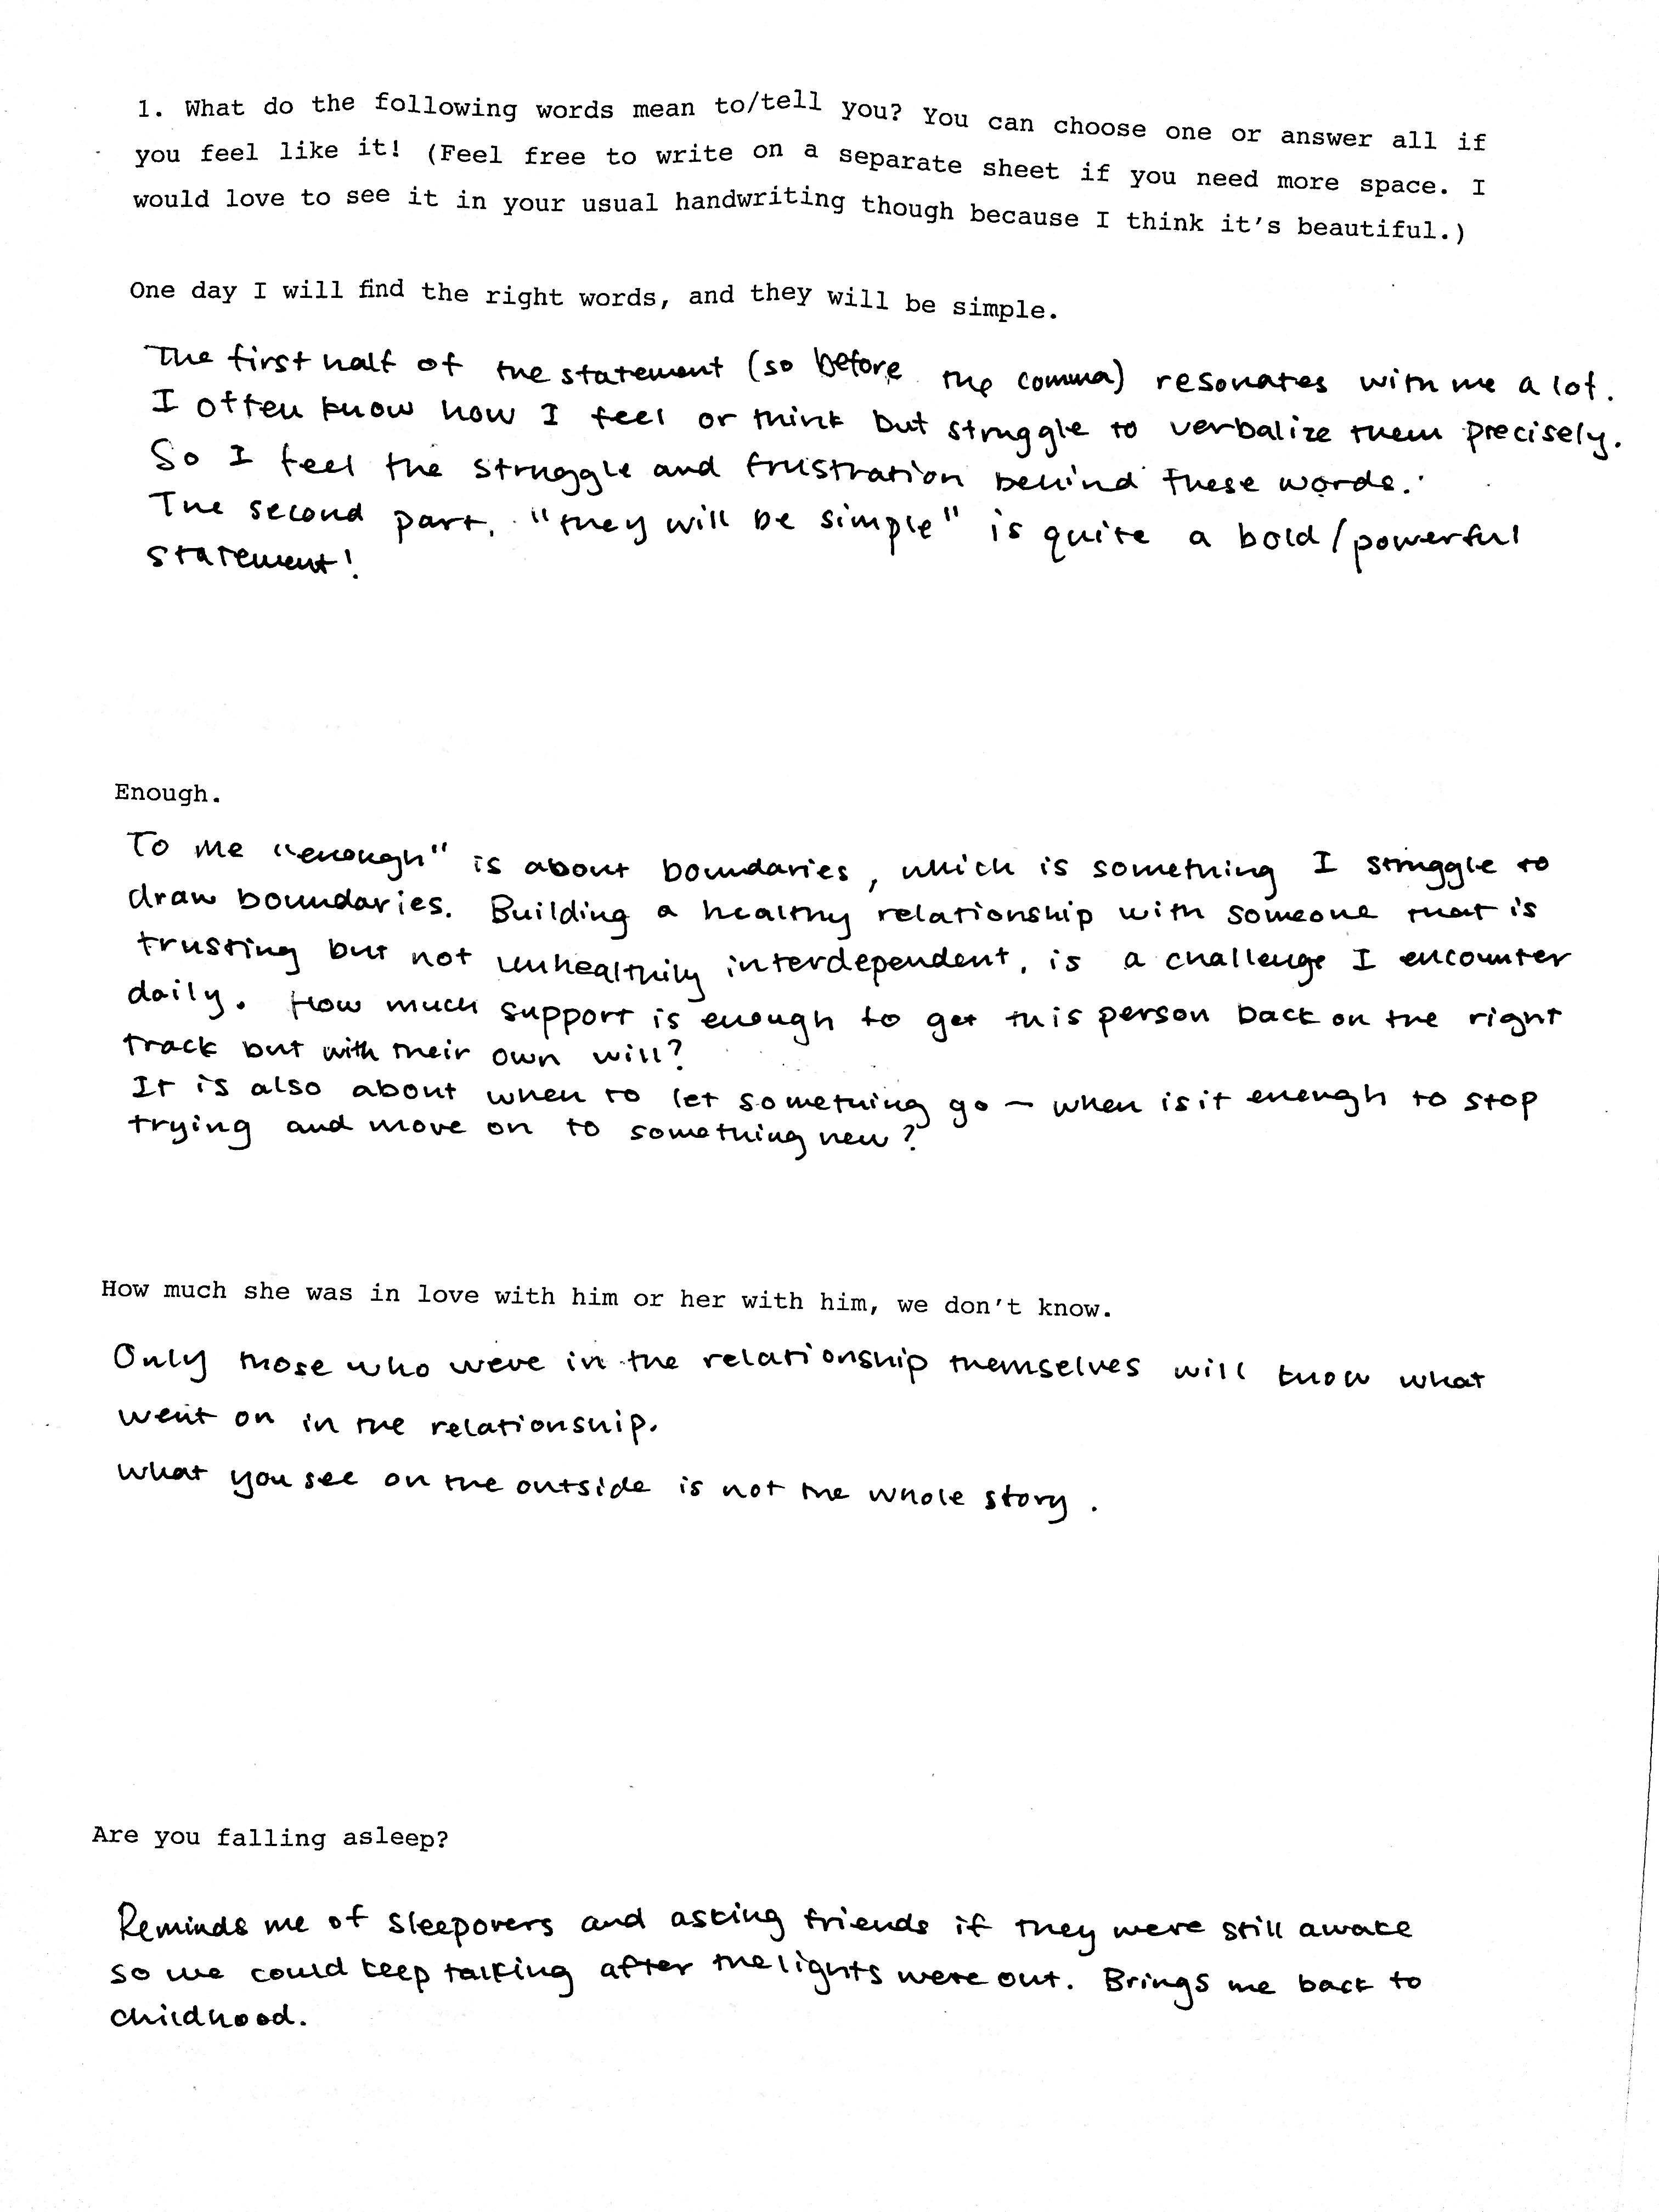 1. What do the following words mean to/tell you? You can choose one or answer all if
you feel like it! (Feel free to write on a separate sheet if you need more space. I
would love to see it in your usual handwriting though because I think it's beautiful.)
One day I will find the right words, and they will be simple.
The first half of the statement (so before the comma) resonates with me a lot.
I often know how I feel or think but struggle to verbalize them precisely.
So I feel the struggle and frustration behind these words.
The second part, "they will be simple" is quite a bold/powerful
statement!
Enough.
To me "enough" is about boundaries, which is something I struggle to
draw boundaries. Building a healthy relationship with someone that is
trusting but not unhealthily interdependent, is a challenge I encounter
daily. How much support is enough to get this person back on the right
track but with their own will?
It is also about when to let something go – when is it enough to stop
trying and move on to something new?
How much she was in love with him or her with him, we don't know.
Only those who were in the relationship themselves will know what
went on in the relationship.
What you see on the outside is not the whole story.
Are you falling asleep?
Reminds me of sleepovers and asking friends if they were still awake
so we could keep talking after the lights were out. Brings me back to
childhood.